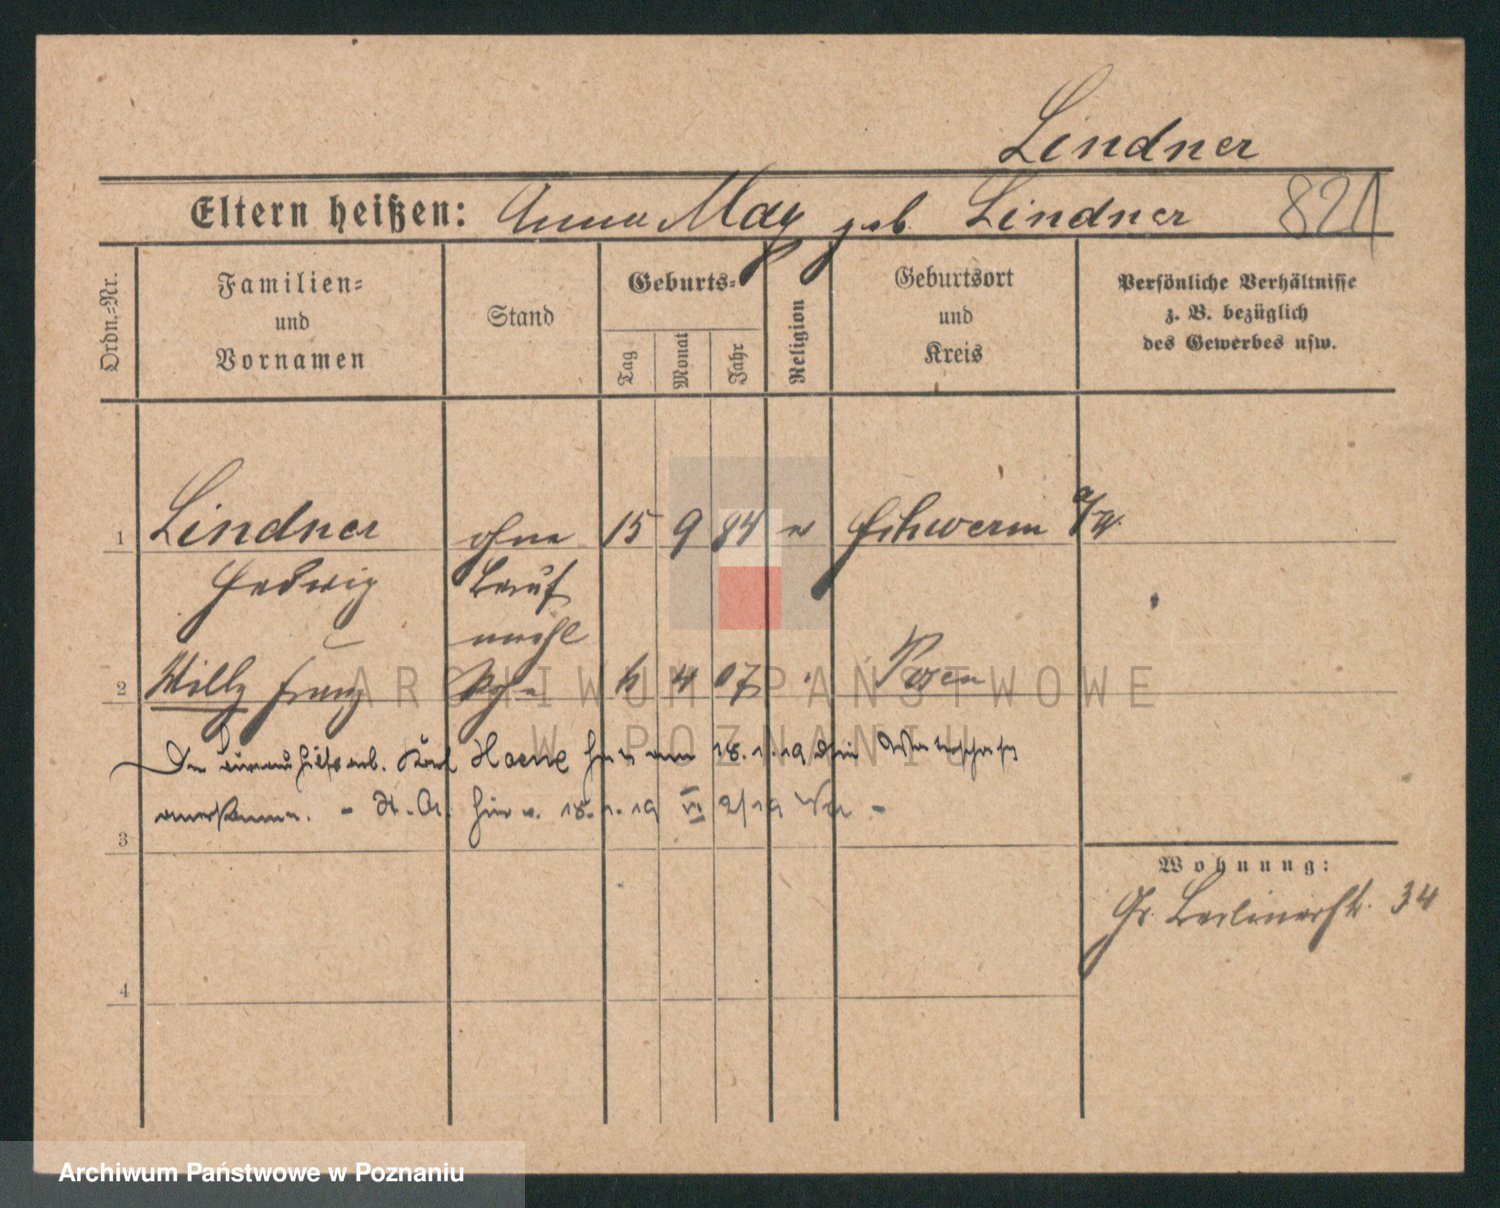 Lindner
Eltern heißen: Anna May geb. Lindner 821
Ordn.-Nr.
Familien-
und
Vornamen
Stand
Geburts-
Tag
Monat
Jahr
Religion
Geburtsort
und
Kreis
Persönliche Verhältnisse
z. B. bezüglich
des Gewerbes usw.
1 Lindner ohne 15 9 84 Schwerin a/W.
Hedwig Beruf
unehl
2 Willy Franz Sohn 4 07 Posen
ARCHIWUM PAŃSTWOWE
W POZNANIU
Der Karl hat am 18.1.19 die Vaterschaft
anerkannt. - St. A. hier v. 18.1.19 VI 2/19
3
Wohnung:
Gr. Berlinerstr. 34
4
Archiwum Państwowe w Poznaniu